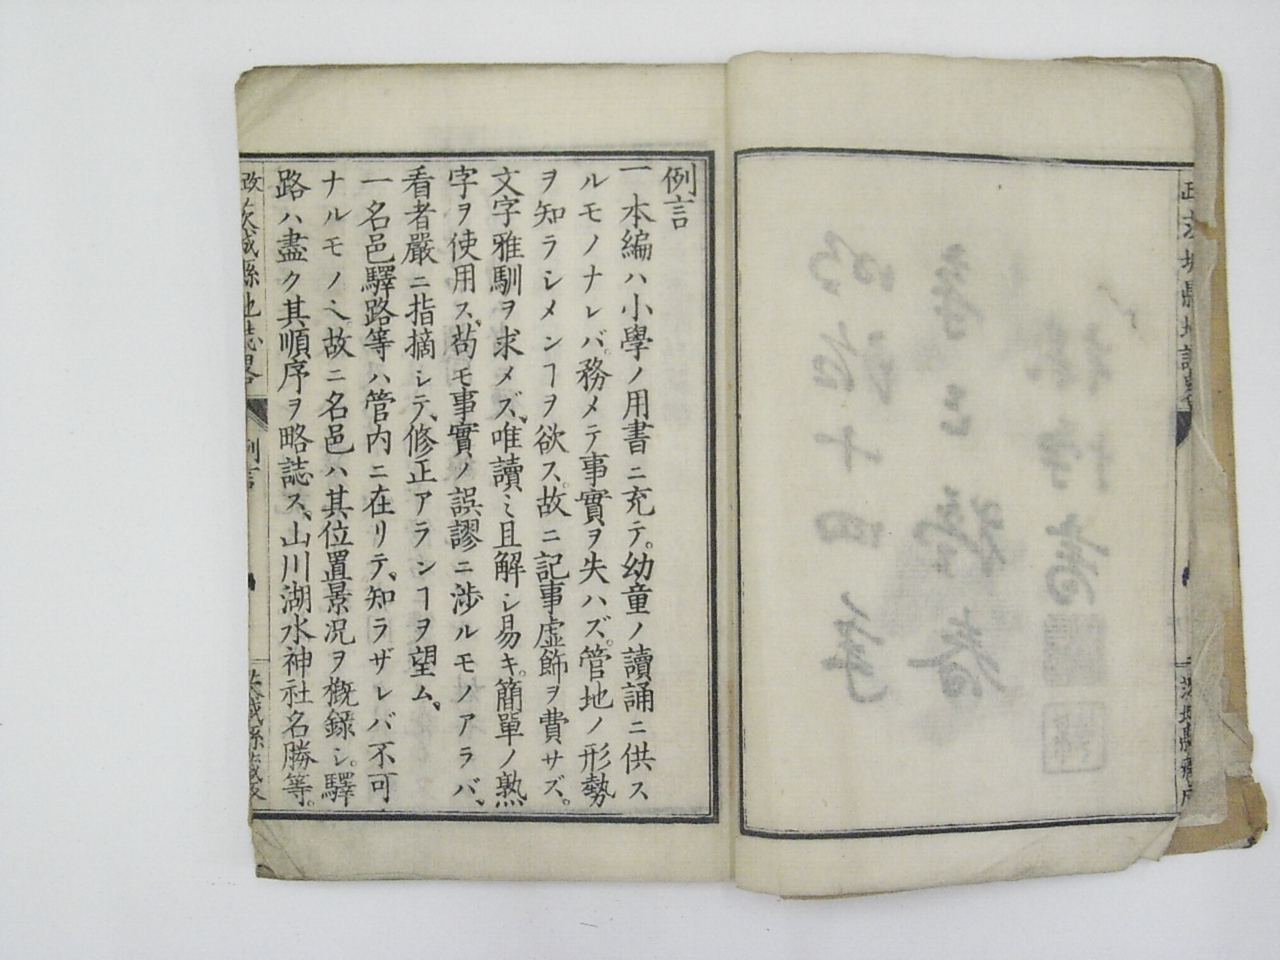 例言
一本編ハ小學ノ用書ニ充テ。幼童ノ讀誦ニ供ス
ルモノナレバ。務メテ事實ヲ失ハズ。管地ノ形勢
ヲ知ラシメンヿヲ欲ス。故ニ記事虚飾ヲ費サズ。
文字雅馴ヲ求メズ、唯讀ミ且解シ易キ。簡單ノ熟
字ヲ使用ス、苟モ事實ノ誤謬ニ渉ルモノアラバ、
看者嚴ニ指摘シテ、修正アランヿヲ望ム、
一名邑驛路等ハ管内ニ在リテ、知ラザレバ不可
ナルモノヘ、故ニ名邑ハ其位置景况ヲ概録シ。驛
路ハ盡ク其順序ヲ略誌ス、山川湖水神社名勝等。
茨城縣地誌略
例言
茨城縣藏